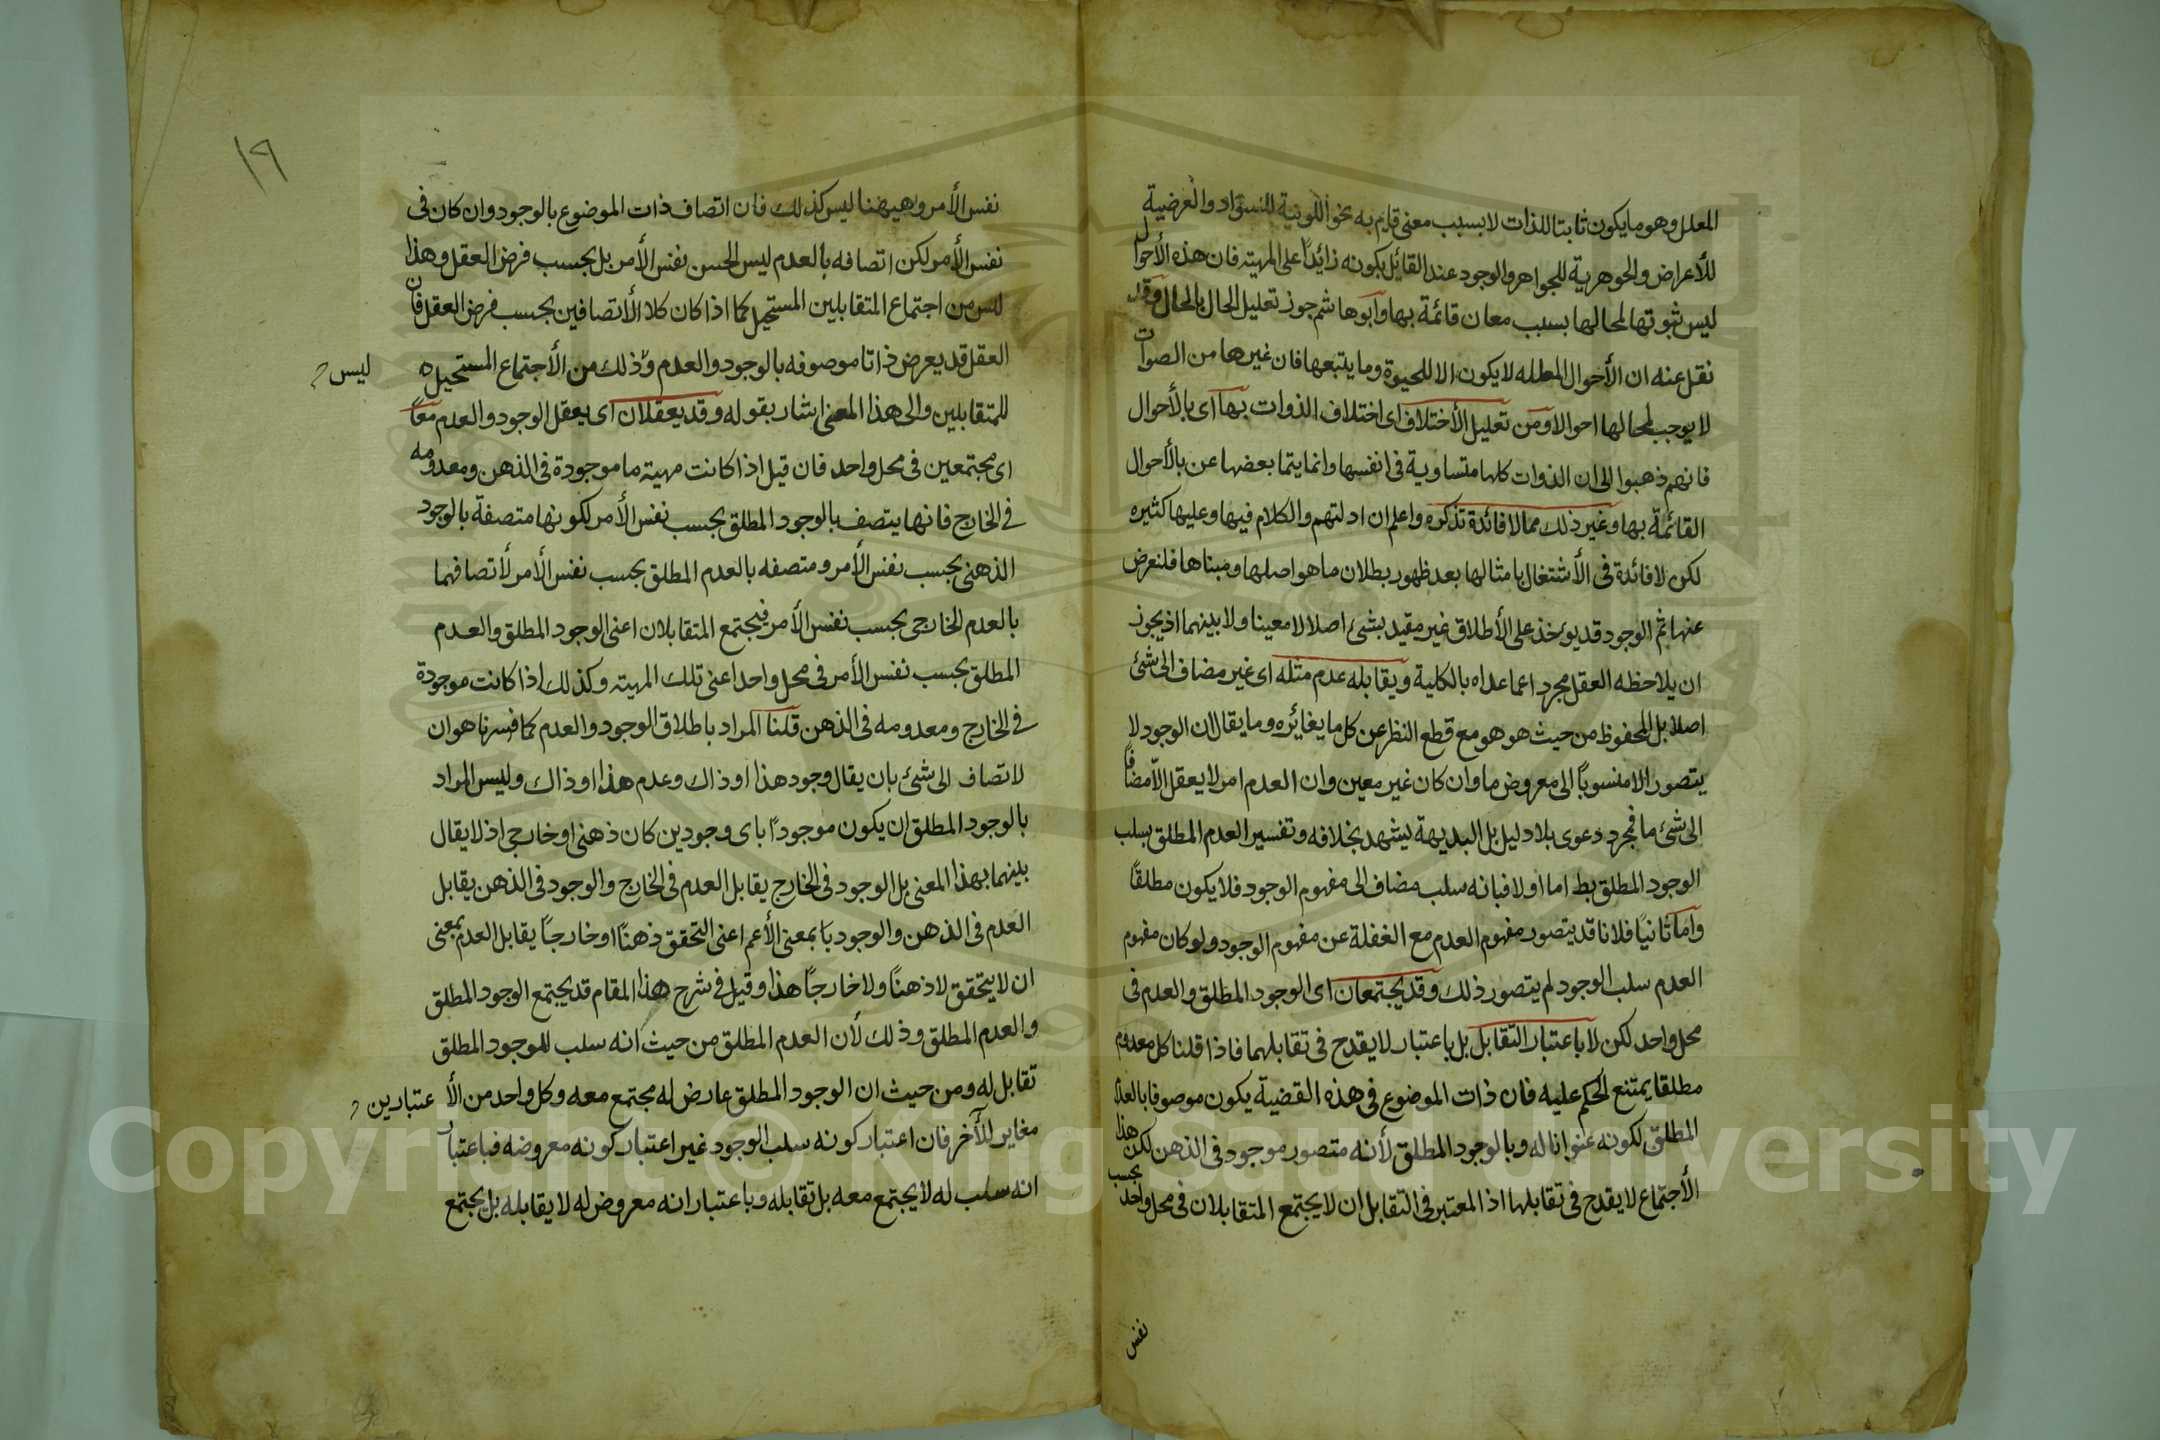 المعلل وهو ما يكون ثابتا للذات لا بسبب معنى قام به نحو اللونية للسواد والعرضية
للأعراض والجوهرية للجواهر والوجود عند القائل بكونه زائداً على المهية فان هذه الأحوال
ليس ثبوتها لمحالها بسبب معان قائمة بها وابوها شم جوز تعليل الحال بالحال وقد
نقل عنه ان الأحوال المعلله لا يكون الا للحيوة وما يتبعها فان غيرها من الصوات
لا يوجب لمحالها احوالا ومن تعليل الأختلاف اى اختلاف الذوات بها اى بالأحوال
فانهم ذهبوا الى ان الذوات كلها متساوية فى انفسها وانما يتما بعضها عن بالأحوال
القائمة بها وغير ذلك مما لا فائدة تذكره واعلم ان ادلتهم والكلام فيها وعليها كثيره
لكن لا فائدة فى الأشتغال بامثالها بعد ظهور بطلان ما هو اصلها ومبناها فلنعرض
عنها ثم الوجود قد يوخذ على الأطلاق غير مقيد بشئ اصلا لا معينا ولا بينهما اذ يجوز
ان يلاحظه العقل مجرد اعما عداه بالكلية ويقابله عدم مثله اى غير مضاف الى شئ
اصلا بل الملحفوظ من حيث هو هو مع قطع النظر عن كل ما يغائره وما يقال ان الوجود لا
يتصور الا منسوباً الى معروض ما وان كان غير معين وان العدم امر لا يعقل الّا مضافاً
الى شئ ما فمجرد دعوى بلا دليل بل البديهة يشهد بخلافه وتفسير العدم المطلق بسلب
الوجود المطلق بط اما اولا فبانه سلب مضاف الى مفهوم الوجود فلا يكون مطلقاً
واما ثانيًا فلانا قد يتصور مفهوم العدم مع الغفلة عن مفهوم الوجود ولو كان مفهوم
العدم سلب الوجود لم يتصور ذلك وقد يجتمعان اى الوجود المطلق والعدم فى
محل واحد لكن لا باعتبار التقابل بل باعتبار لا يقدح فى تقابلهما فاذا قلنا كل معدوم
مطلقا يمتنع الحكم عليه فان ذات الموضوع فى هذه القضية يكون موصوفا بالعدم
المطلق لكونه عنوانا له وبالوجود المطلق لأنه متصور موجود فى الذهن لكن هذا
الأجتماع لا يقدح فى تقابلها اذ المعتبر فى التقابل ان لا يجتمع المتقابلان فى محل واحد بحسب
نفس
١٦
نفس الأمر وهيهنا ليس كذلك فان اتصاف ذات الموضوع بالوجود وان كان فى
نفس الأمر لكن اتصافه بالعدم ليس الحسن نفس الأمر بل بحسب فرض العقل وهذا
ليس من اجتماع المتقابلين المستحيل كما اذا كان كلا الأتصافين بحسب فرض العقل فان
العقل قد يعرض ذاتا موصوفه بالوجود والعدم وذلك من الأجتماع المستحيل
ليس
للمتقابلين والى هذا المعنى اشار بقوله وقد يعقلان اى يعقل الوجود والعدم معاً
اى مجتمعين فى محل واحد فان قيل اذا كانت مهية ما موجودة فى الذهن ومعدومه
فى الخارج فانها يتصف بالوجود المطلق بحسب نفس الأمر لكونها متصفة بالوجود
الذهنى بحسب نفس الأمر ومتصفه بالعدم المطلق بحسب نفس الأمر لأتصافها
بالعدم الخارجى بحسب نفس الأمر فيجتمع المتقابلان اعنى الوجود المطلق والعدم
المطلق بحسب نفس الأمر فى محل واحد اعنى تلك المهية وكذلك اذا كانت موجودة
فى الخارج ومعدومه فى الذهن قلنا المراد باطلاق الوجود والعدم كما فسرنا هو ان
لا تصاف الى شئ بان يقال وجود هذا او ذاك وعدم هذا او ذاك وليس المراد
بالوجود المطلق ان يكون موجودًا باى وجودين كان ذهنى او خارجى اذ لا يقال
بينهما بهذا المعنى بل الوجود فى الخارج يقابل العدم فى الخارج والوجود فى الذهن يقابل
العدم فى الذهن والوجود با بمعنى الأعم اعنى التحقق ذهنًا او خارجًا يقابل العدم بمعنى
ان لا يتحقق لا ذهنًا ولا خارجًا هذا وقيل فى شرح هذا المقام قد يجتمع الوجود المطلق
والعدم المطلق وذلك لأن العدم المطلق من حيث انه سلب للوجود المطلق
تقابل له ومن حيث ان الوجود المطلق عارض له مجتمع معه وكل واحد من الأعتبارين
مغاير للآخر فان اعتبار كونه سلب الوجود غير اعتبار كونه معروضه فباعتبار
انه سلب له لا يجتمع معه بل تقابله وباعتبار انه معروض له لا يقابله بل يجتمع
Copyright © King Saud University